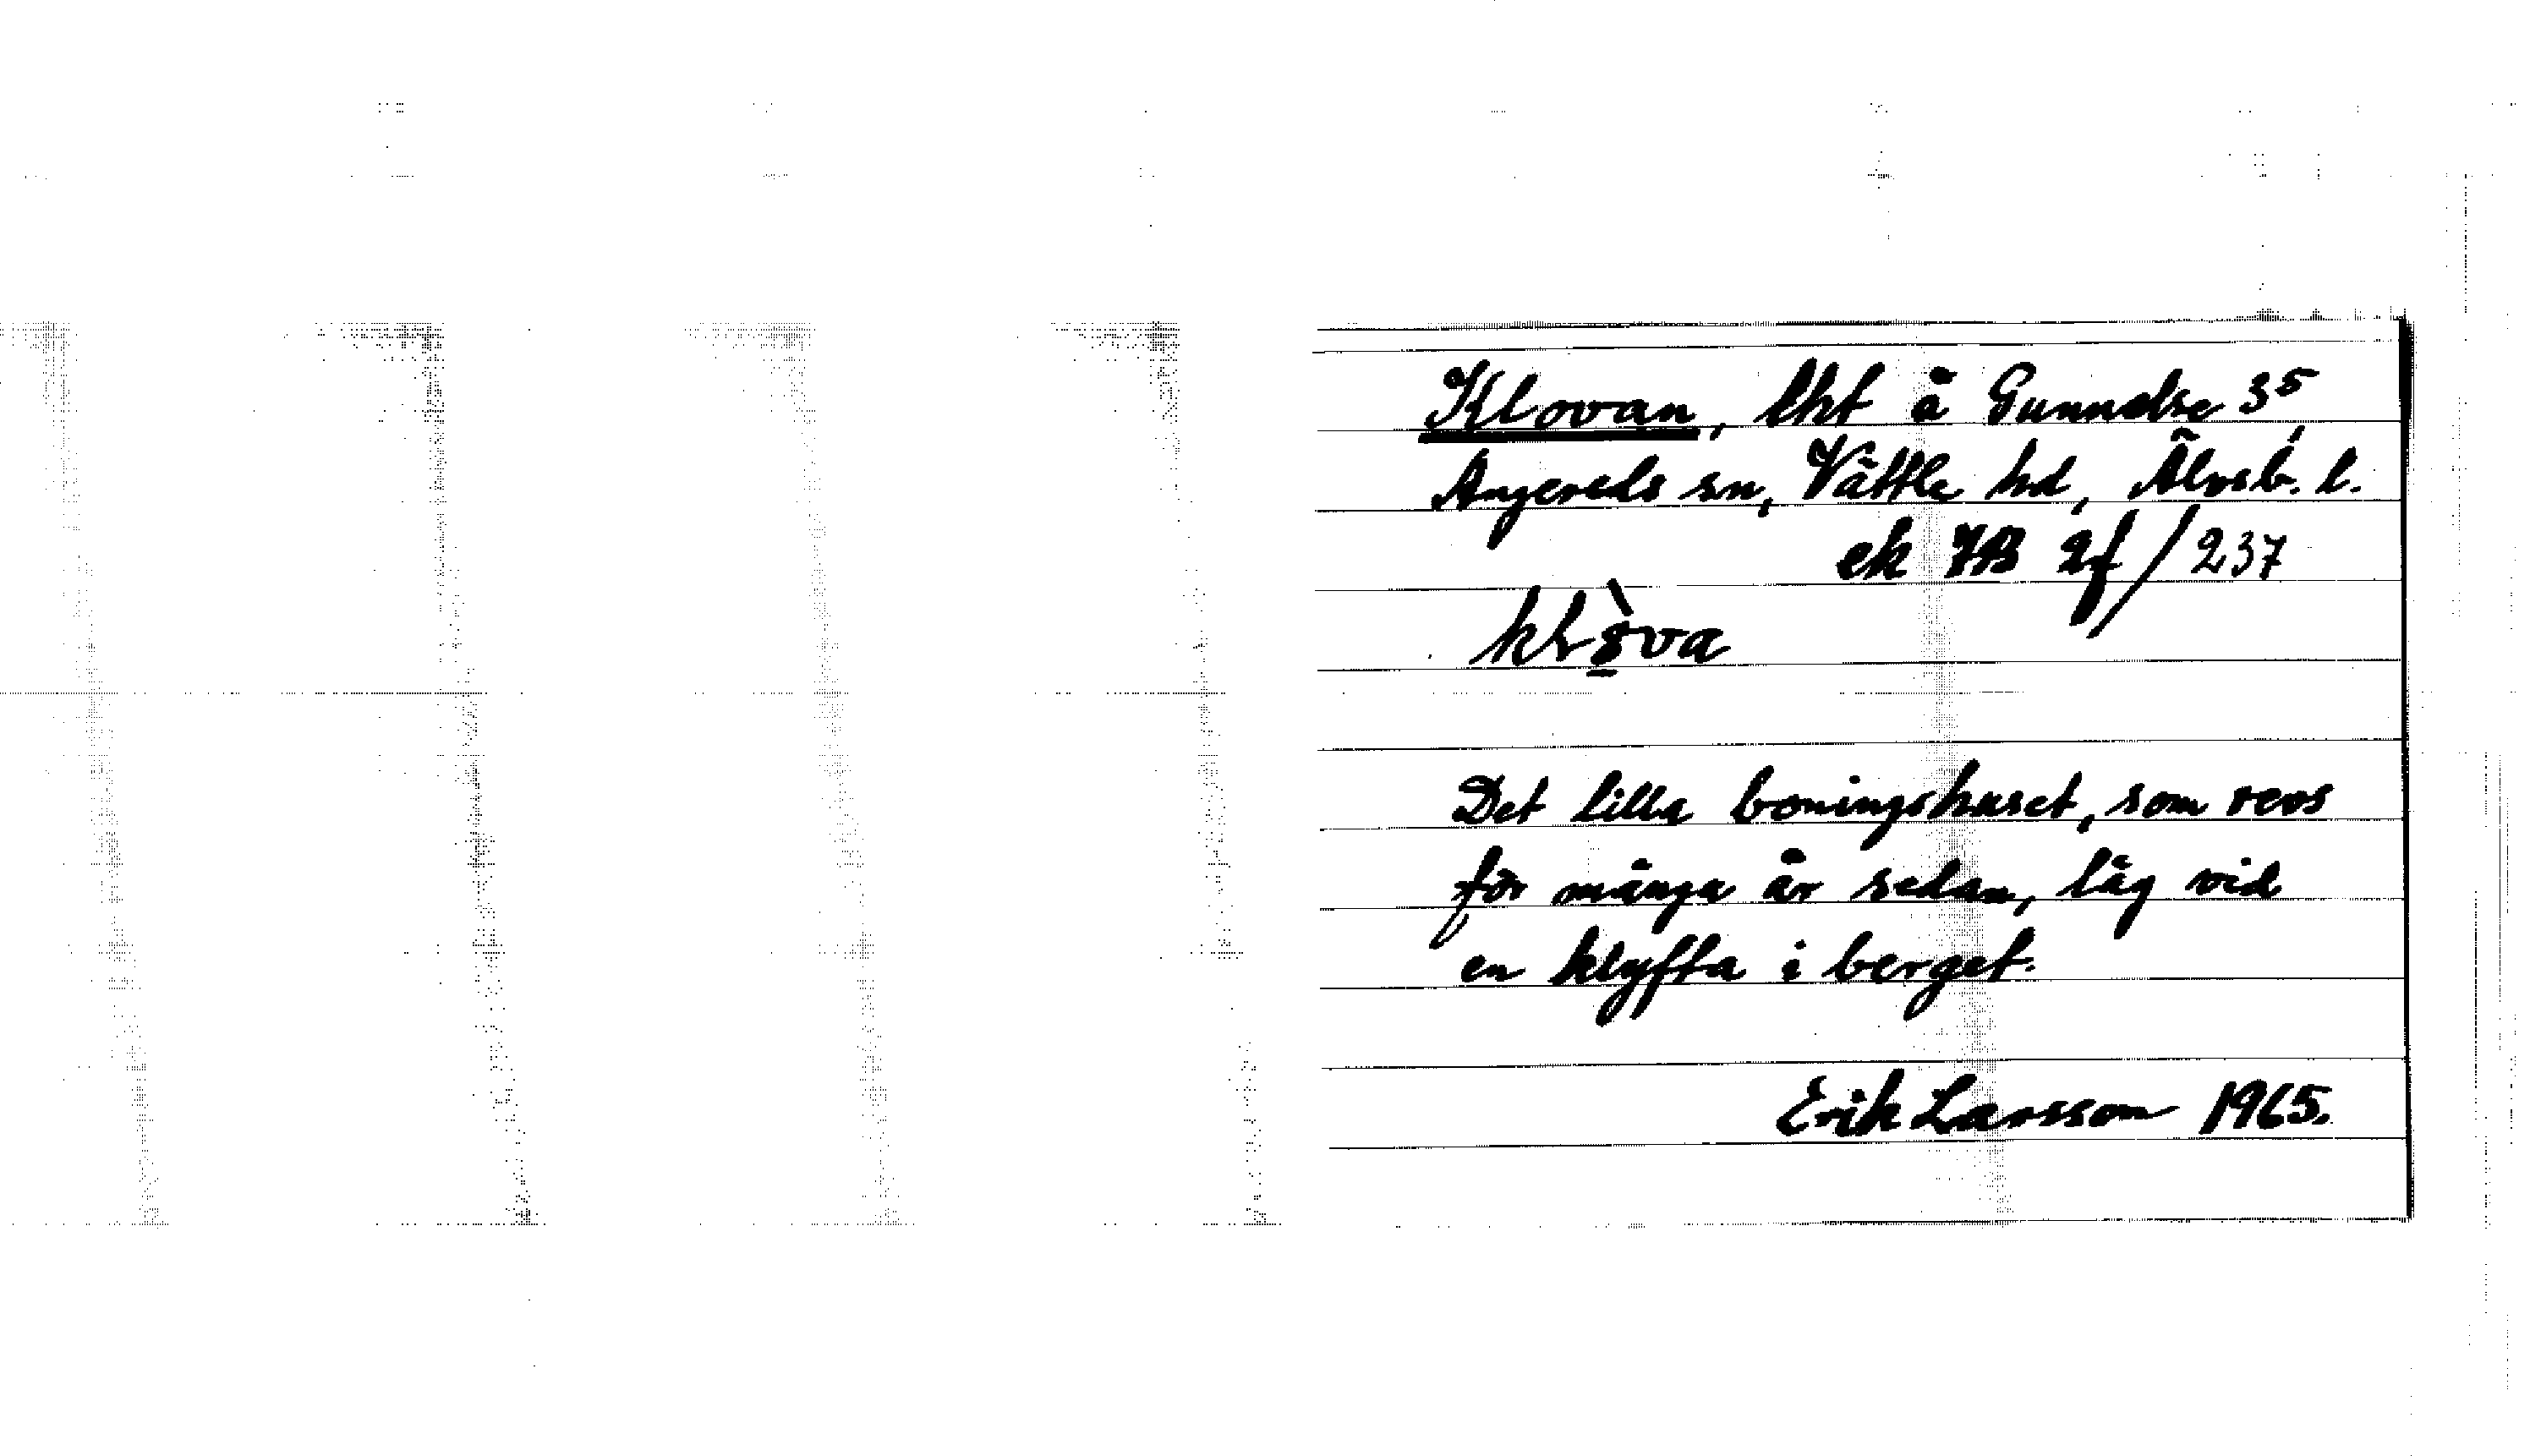 Klovan, lht å Gunnelse 3⁵,
Angereds sn, Vättle hd, Älvsb. l.
ek 7B 2f/237
Det lilla boningshuset, som revs
för många år sedan, låg vid
en klyfta i berget.
Erik Larsson 1965.